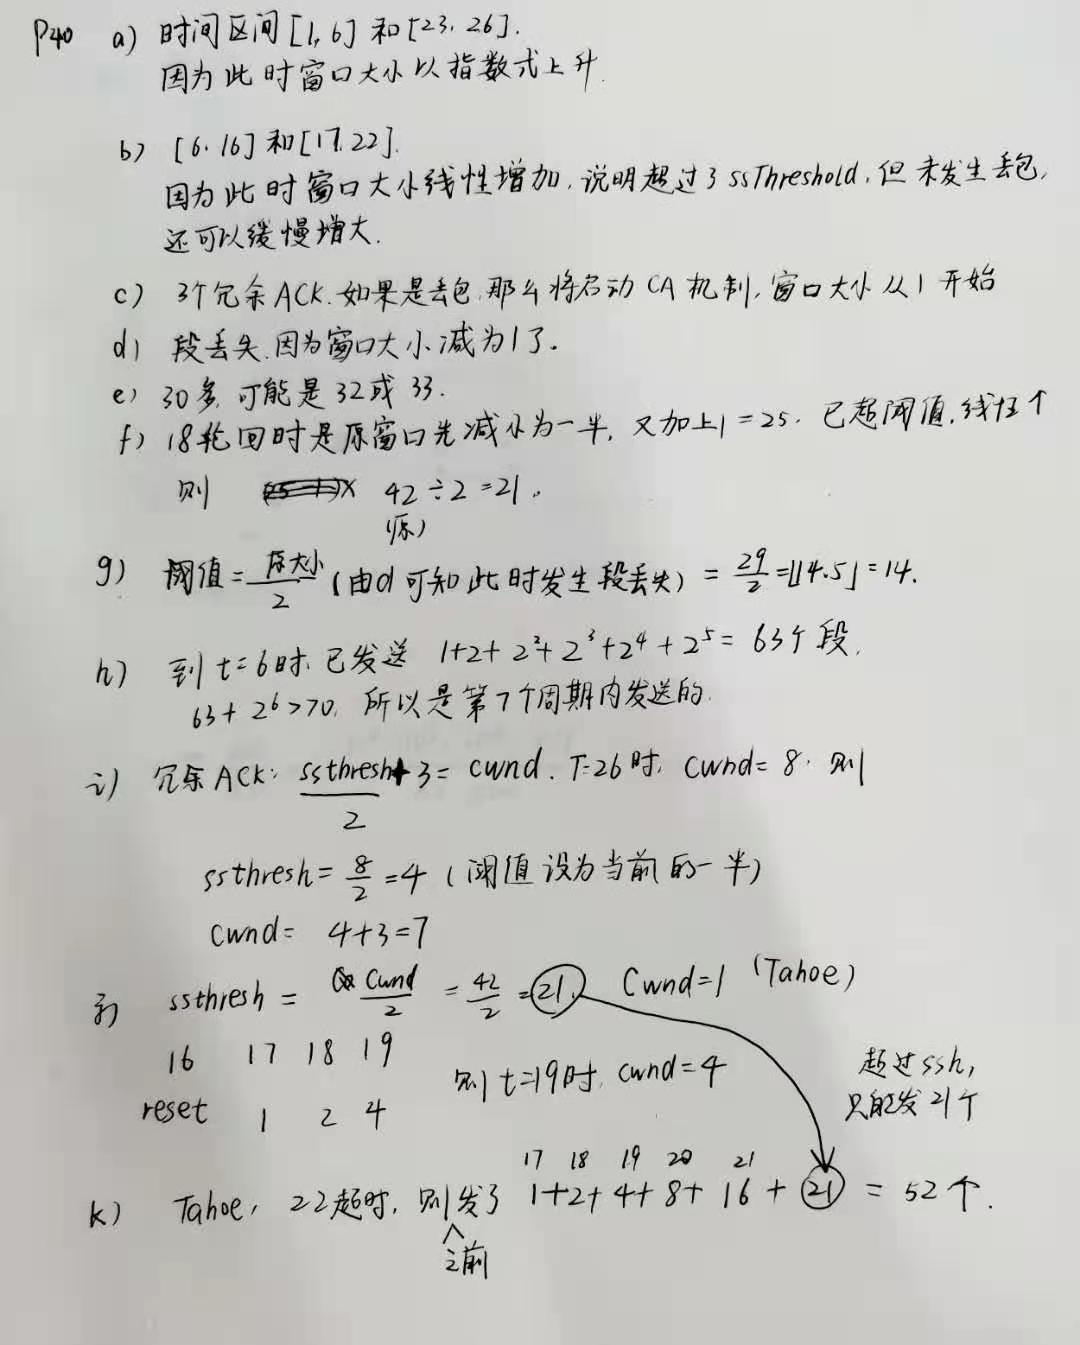 P40 a) 时间区间[1,6]和[23,26].
因为此时窗口大小以指数式上升.
b) [6.16]和[17.22].
因为此时窗口大小线性增加,说明超过了ssThreshold,但未发生丢包,
还可以缓慢增大.
c) 3个冗余ACK.如果是丢包,那么将启动CA机制,窗口大小从1开始
d) 段丢失.因为窗口大小减为1了.
e) 30多,可能是32或33.
f) 18轮回时是原窗口先减小为一半,又加上1=25.已超阈值,线性↑
则 42÷2=21.
(原)
g) 阈值=原大小/2(由d可知此时发生段丢失)=29/2=⌊14.5⌋=14.
h) 到t=6时,已发送 1+2+2²+2³+2⁴+2⁵=63个段.
63+2⁶>70,所以是第7个周期内发送的.
i) 冗余ACK: ssthresh/2+3=cwnd.T=26时,cwnd=8.则
ssthresh=8/2=4(阈值设为当前的一半)
cwnd= 4+3=7
j) ssthresh=cwnd/2=42/2=21. Cwnd=1 (Tahoe)
16 17 18 19
reset 1 2 4
则t=19时,cwnd=4
超过ssh,
只能发21个
17 18 19 20 21
k) Tahoe, 22超时,则发了 1+2+4+8+16+21=52个.
之前